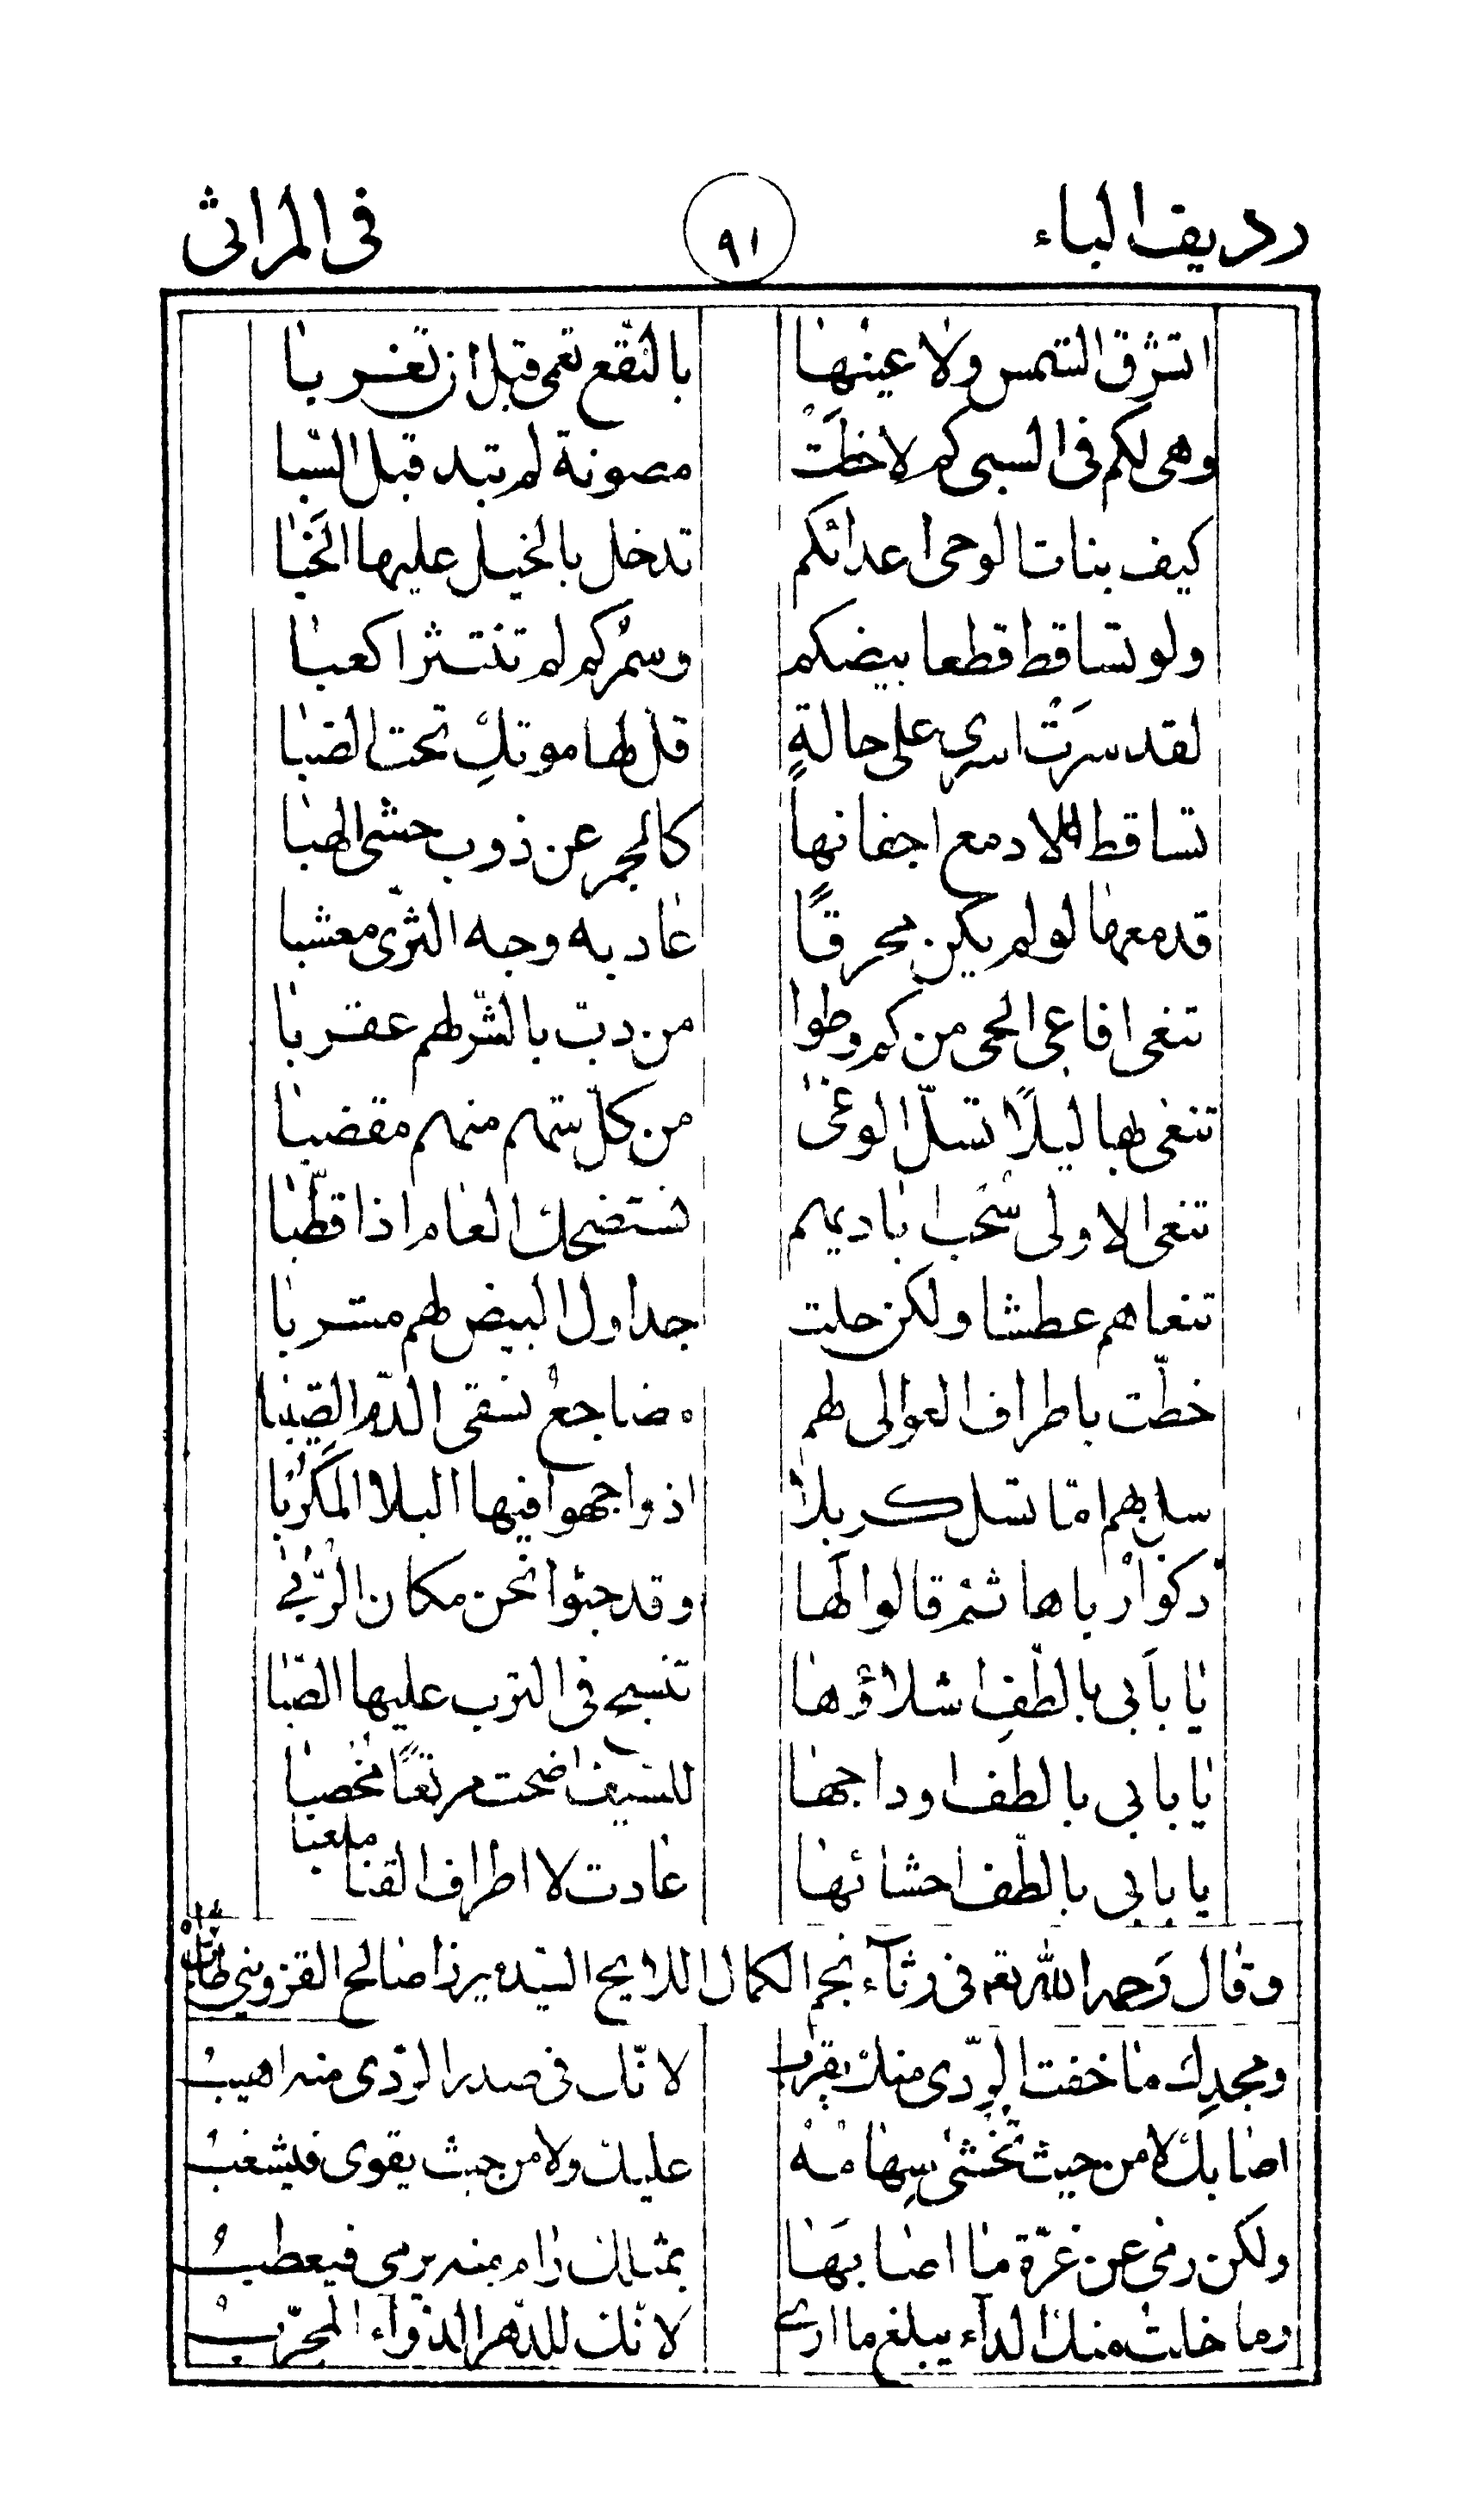 رديف الباء ٩١ في المراثي
اتشرق الشمس ولا عينها بالنقع تعمى قبل ان تغربا
وهي لكم في السبي كم لاحظت مصونة لم تبد قبل السبا
كيف بنات الوحي اعدائكم تدخل بالخيل عليها الخبا
ولو تساقط قطعا بيضكم وسمركم لم تنتثر اكعبا
لقد سرت اسرى على حالةٍ قل لها موتكِ تحت الضبا
تساقط الادمع اجفانها كالجمر عن ذوب حشى الهبا
فدمعها لو لم يكن محرقًا عاد به وجه الثرى معشبا
تنعى افاعي الحي من كم وطوا من دبّ بالشر لهم عقربا
تنعى بها ليلًا تسلّ الوغى من كلّ شهم منهم مقضبا
تنعى الاولى سُحب اياديهم تستضحك العام اذا قطّبا
تنعاهم عطشا ولكن حلت جداول البيض لهم مشربا
خطّت باطراف العوالي لهم مضاجع تسقى الدم الصّيبا
سل بهم امّا تسل كربلا اذ واجهوا فيها البلا المكربا
دكوا رباها ثم قالوا لها وقد جثوا نحن مكان الرّبى
يا بأبي بالطف اشلاؤها تنسج في الترب عليها الصّبا
يا بابي بالطف اوداجها للسيف اضحت مرتعًا مخصبا
يا بابي بالطف احشائها عادت لا اطراف القنا ملعبا
وقال رحمه الله تع في رثآء نجم الكمال اللايح السيد ميرزا صالح القزويني طاب ثراه
ومجدِك ما خفت الردى منك يقرب لانّك في صدر الردى منه اهيب
اصابك لا من حيث تخشى سهامه عليك ولا من حيث يقوى فيشغب
ولكن رمى عن غرّة ما اصابها بمثلك رام منه يرمى فيعطب
وما خلت منك الدآء يبلغ ما ارى لانّك للدهر الدوآء المجرّب